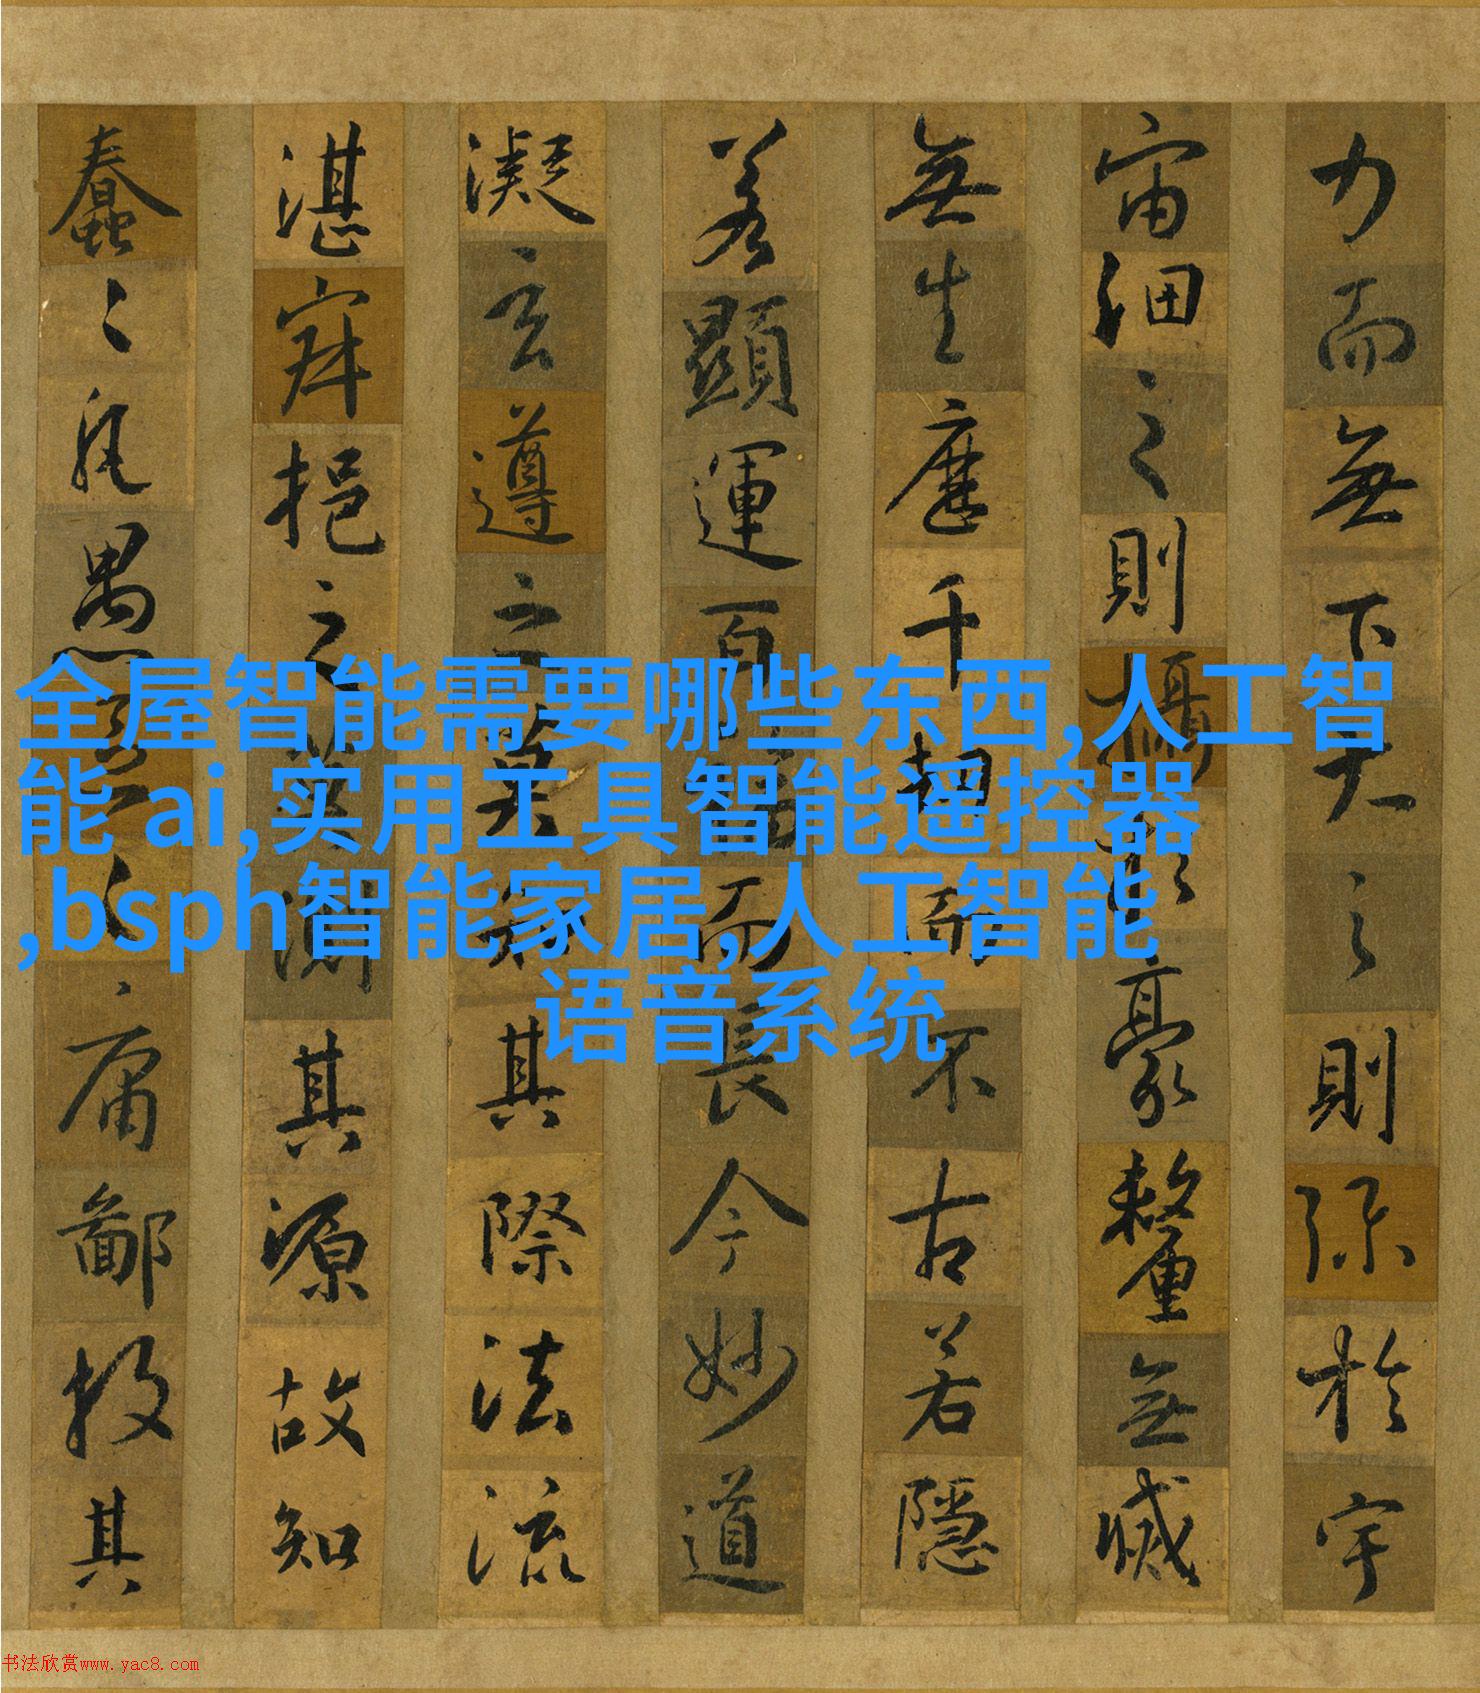 力而無下大之則弥於宇
宙細之則攝於豪釐無滅
無生歷千劫而不古若隱
若顯運百福而長今妙道
凝玄遵之莫知其際法流
湛寂挹之莫測其源故知
蠢々凡愚區々庸鄙投其
全屋智能需要哪些东西,人工智
能 ai,实用工具智能遥控器
,bsph智能家居,人工智能
语音系统
书法欣赏www.yac8.com